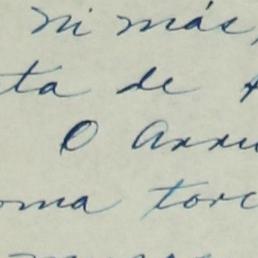 ni más,
ta de
O Arru
oma torc